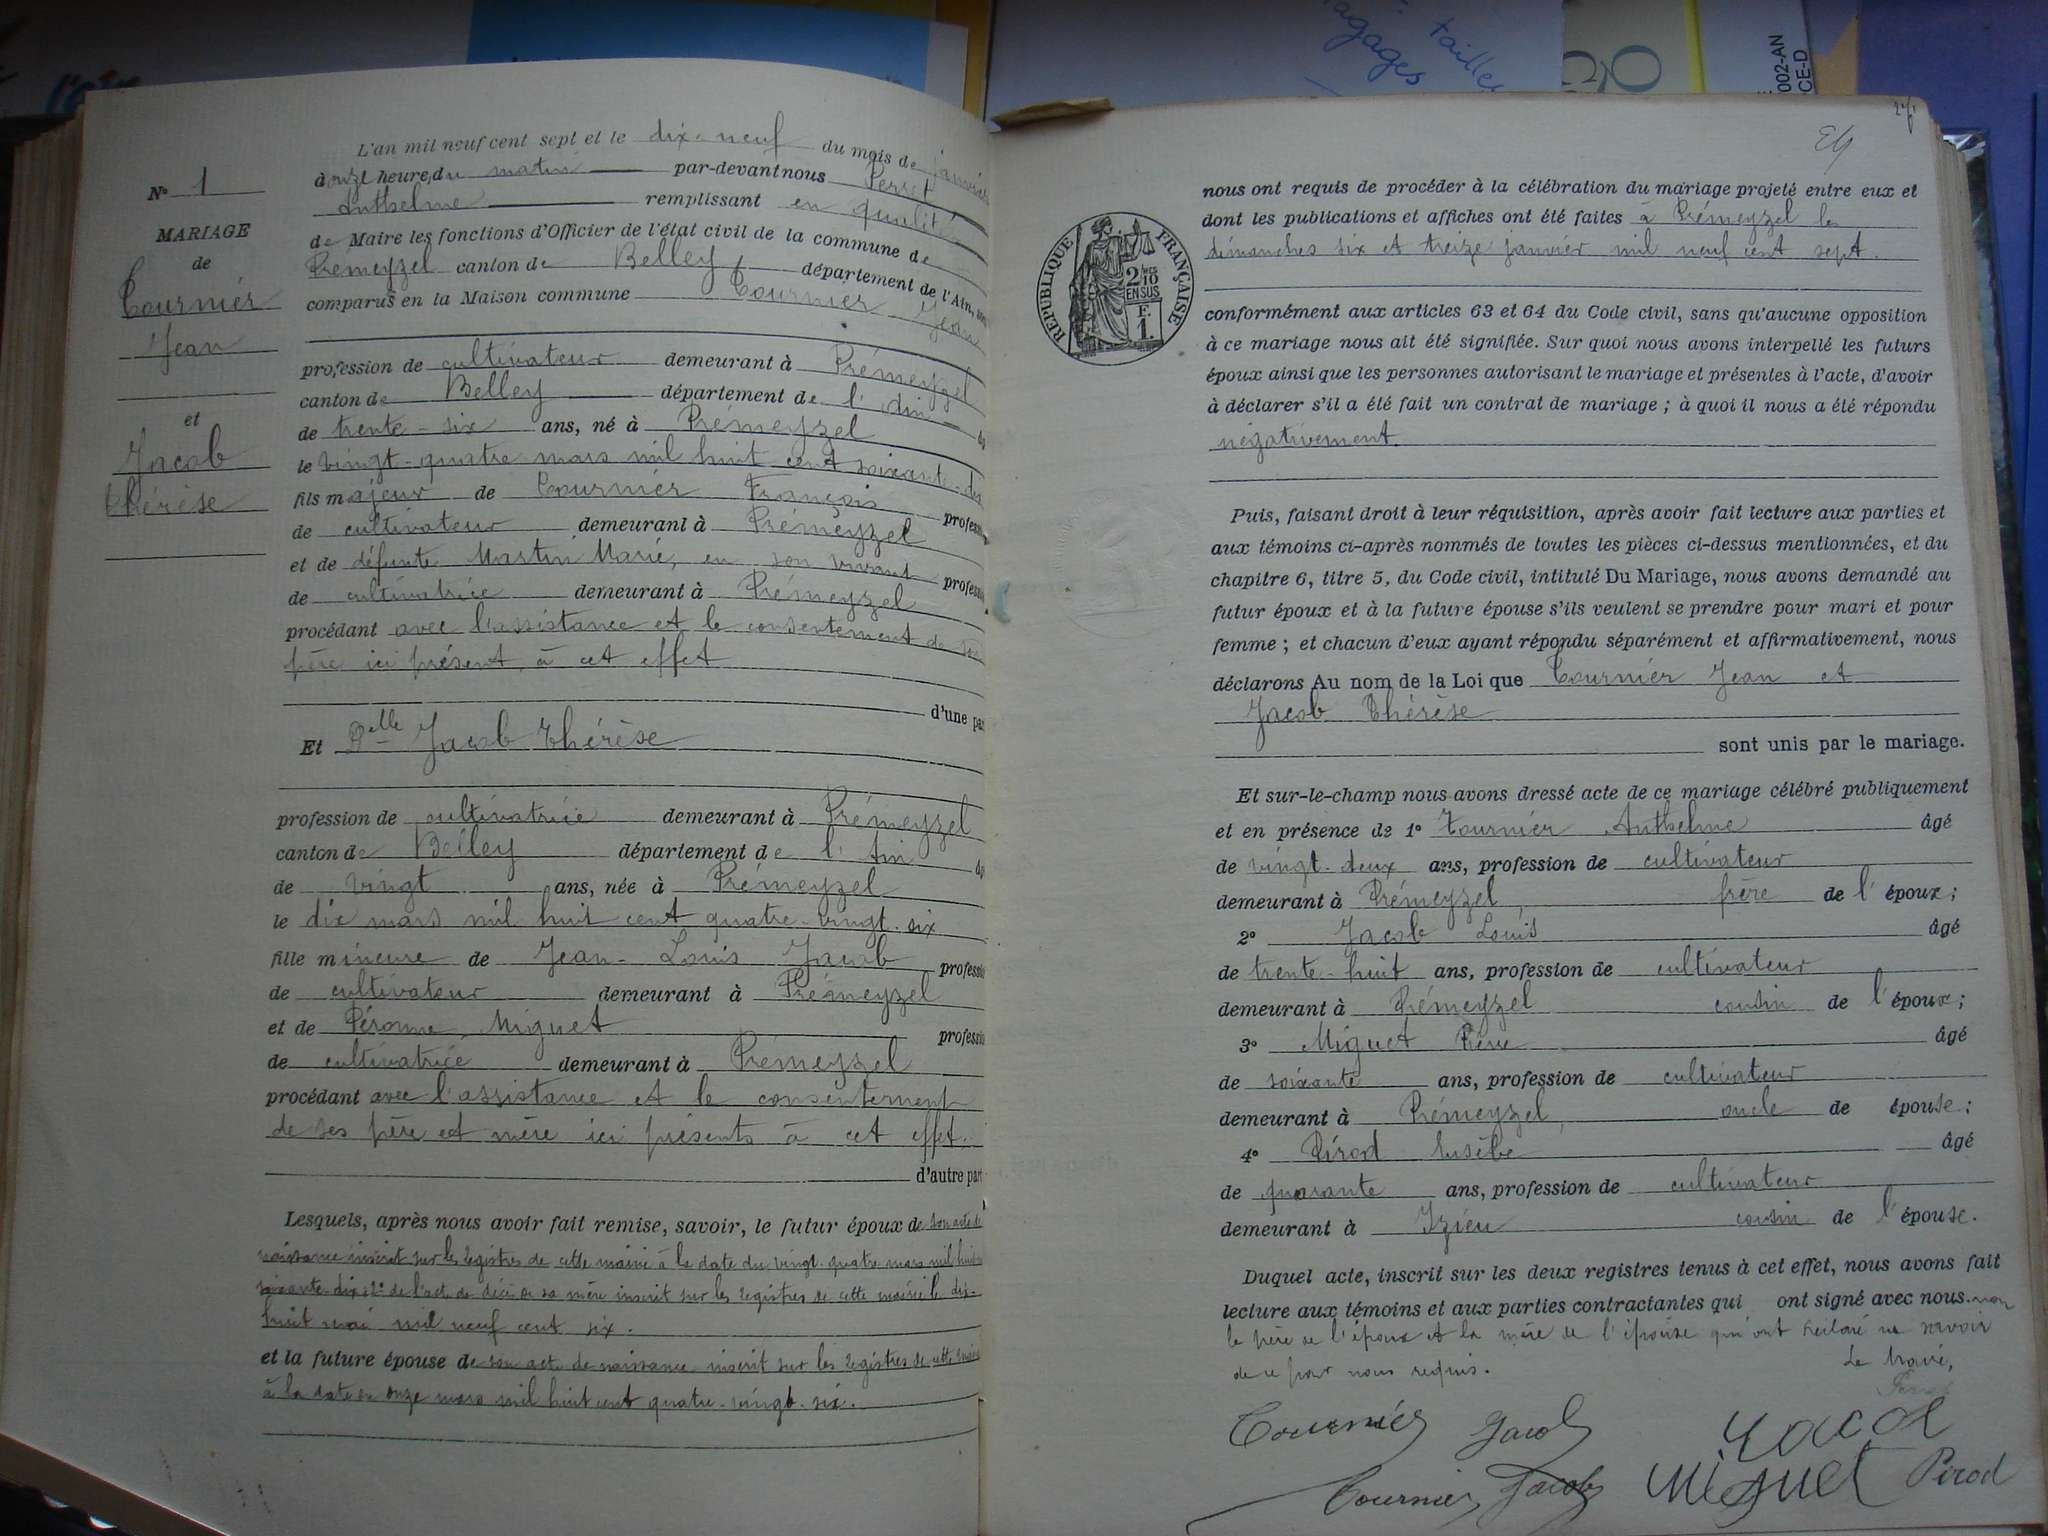 tailles
gages
002-AN
CE-D
L'an mil neuf cent sept et le dix-neuf du mois de janvier
à onze heures du matin par-devant nous Perret
Anthelme remplissant en qualité
de Maire les fonctions d'Officier de l'état civil de la commune de
Prémeyzel canton de Belley département de l'Ain,
comparus en la Maison commune Tournier Jean
N° 1
MARIAGE
de
Tournier
Jean
et
Jacob
Thérèse
profession de cultivateur demeurant à Prémeyzel
canton de Belley département de l'Ain
de trente-six ans, né à Prémeyzel
le vingt-quatre mars mil huit cent soixante-dix
fils majeur de Tournier François profession
de cultivateur demeurant à Prémeyzel
et de défunte Martin Marie, en son vivant profession
de cultivatrice demeurant à Prémeyzel
procédant avec l'assistance et le consentement de son
père ici présent à cet effet
d'une part
Et Delle Jacob Thérèse
profession de cultivatrice demeurant à Prémeyzel
canton de Belley département de l'Ain
de vingt ans, née à Prémeyzel
le dix mars mil huit cent quatre-vingt-six
fille mineure de Jean-Louis Jacob profession
de cultivateur demeurant à Prémeyzel
et de Péronne Miguet profession
de cultivatrice demeurant à Prémeyzel
procédant avec l'assistance et le consentement
de ses père et mère ici présents à cet effet.
d'autre part
Lesquels, après nous avoir fait remise, savoir, le futur époux de son acte de
naissance inscrit sur les registres de cette mairie à la date du vingt-quatre mars mil huit
soixante-dix 2° de l'acte de décès de sa mère inscrit sur les registres de cette mairie le dix-
huit mai mil neuf cent six.
et la future épouse de son acte de naissance inscrit sur les registres de cette mairie
à la date du onze mars mil huit cent quatre-vingt-six.
nous ont requis de procéder à la célébration du mariage projeté entre eux et
dont les publications et affiches ont été faites à Prémeyzel les
dimanches six et treize janvier mil neuf cent sept.
RÉPUBLIQUE FRANÇAISE
2/10
EN SUS
F.
1
conformément aux articles 63 et 64 du Code civil, sans qu'aucune opposition
à ce mariage nous ait été signifiée. Sur quoi nous avons interpellé les futurs
époux ainsi que les personnes autorisant le mariage et présentes à l'acte, d'avoir
à déclarer s'il a été fait un contrat de mariage ; à quoi il nous a été répondu
négativement.
Puis, faisant droit à leur réquisition, après avoir fait lecture aux parties et
aux témoins ci-après nommés de toutes les pièces ci-dessus mentionnées, et du
chapitre 6, titre 5, du Code civil, intitulé Du Mariage, nous avons demandé au
futur époux et à la future épouse s'ils veulent se prendre pour mari et pour
femme ; et chacun d'eux ayant répondu séparément et affirmativement, nous
déclarons Au nom de la Loi que Tournier Jean et
Jacob Thérèse
sont unis par le mariage.
Et sur-le-champ nous avons dressé acte de ce mariage célébré publiquement
et en présence de 1° Tournier Anthelme âgé
de vingt-deux ans, profession de cultivateur
demeurant à Prémeyzel, frère de l'époux ;
2° Jacob Louis âgé
de trente-huit ans, profession de cultivateur
demeurant à Prémeyzel cousin de l'époux ;
3° Miguet Pierre âgé
de soixante ans, profession de cultivateur
demeurant à Prémeyzel, oncle de épouse ;
4° Pirod Eusèbe âgé
de quarante ans, profession de cultivateur
demeurant à Izieu cousin de l'épouse.
Duquel acte, inscrit sur les deux registres tenus à cet effet, nous avons fait
lecture aux témoins et aux parties contractantes qui ont signé avec nous non
le père de l'époux et la mère de l'épouse qui ont déclaré ne savoir
de ce par nous requis. Le Maire,
Tournier Jacob Jacob
Tournier Jacob Miguet Pirod